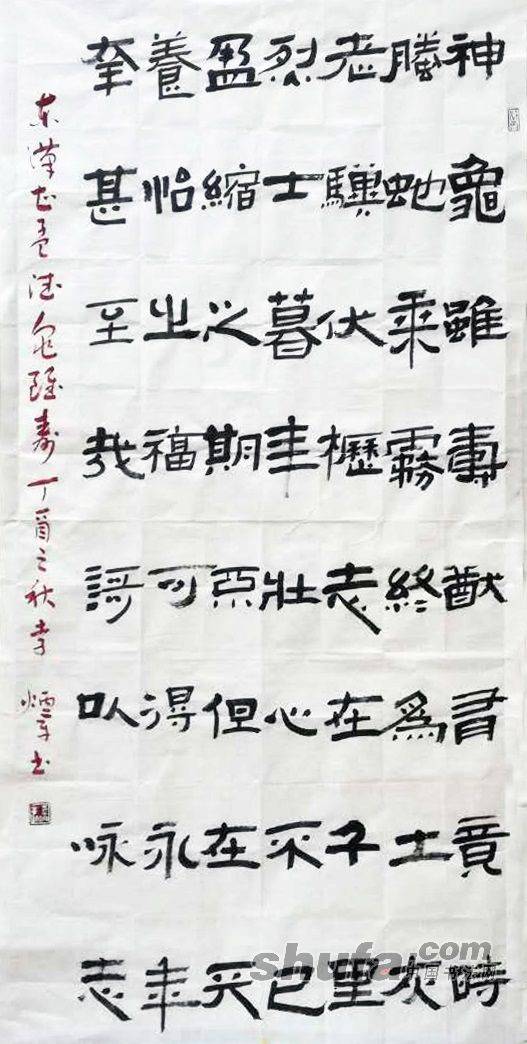 神龜雖壽猷有竟時
螣虵乘霧終爲土灰
老驥伏櫪志在千里
烈士暮年壯心不已
盈縮之期不但在天
養怡之福可得永年
幸甚至哉謌以咏志
东漢曹孟德龜雖壽丁酉之秋李煙平书
shufa.com
中国书法网